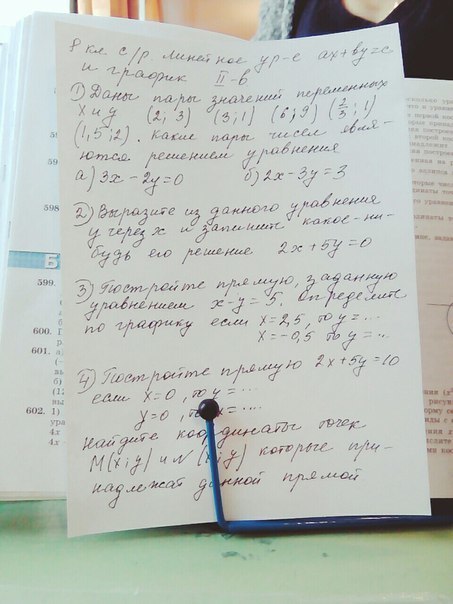 8 кл. с/р. линейное ур-е ax+by=c
и график II-в
1) Даны пары значений переменных
x и y (2; 3) (3; 1) (6; 9) (2/3; 1)
(1,5; 2). Какие пары чисел явля-
ются решением уравнения
а) 3x - 2y = 0 б) 2x - 3y = 3
2) Выразите из данного уравнения
y через x и запишите какое-ни-
будь его решение 2x + 5y = 0
3) Постройте прямую, заданную
уравнением x - y = 5. Определите
по графику если x = 2,5, то y = ...
x = -0,5 то y = ...
4) Постройте прямую 2x + 5y = 10
если x = 0, то y = ...
y = 0, то x = ....
Найдите координаты точек
M(x; y) и N(x; y) которые при-
надлежат данной прямой
Б
598
599.
600.
601.
602. 1)
4x
4x